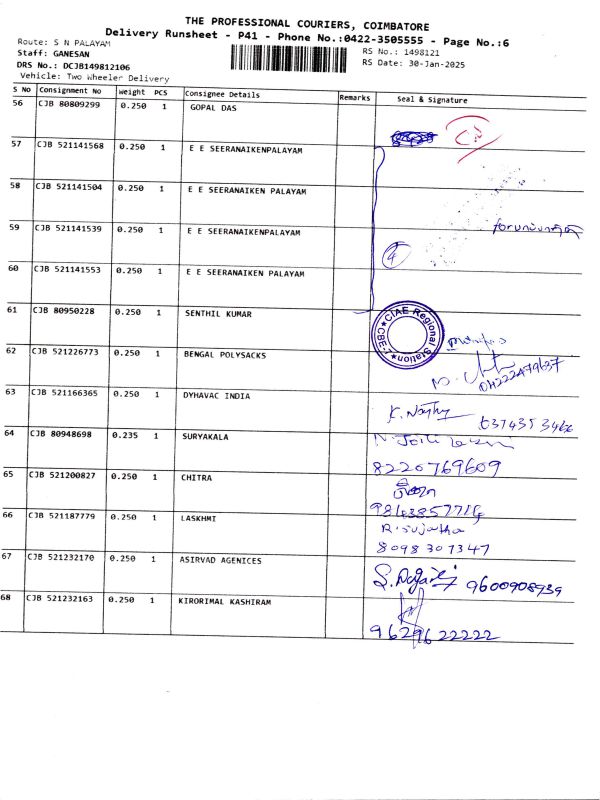 THE PROFESSIONAL COURIERS, COIMBATORE
Delivery Runsheet - P41 - Phone No.:0422-3505555 - Page No.:6
Route: S N PALAYAM
RS No.: 1498121
Staff: GANESAN
RS Date: 30-Jan-2025
DRS No.: DCJB149812106
Vehicle: Two Wheeler Delivery
S No Consignment No Weight PCS Consignee Details Remarks Seal & Signature
56 CJB 80809299 0.250 1 GOPAL DAS
57 CJB 521141568 0.250 1 E E SEERANAIKENPALAYAM
58 CJB 521141504 0.250 1 E E SEERANAIKEN PALAYAM
59 CJB 521141539 0.250 1 E E SEERANAIKENPALAYAM
4
60 CJB 521141553 0.250 1 E E SEERANAIKEN PALAYAM
61 CJB 80950228 0.250 1 SENTHIL KUMAR
CIAE Regional Station CBE-7
62 CJB 521226773 0.250 1 BENGAL POLYSACKS
63 CJB 521166365 0.250 1 DYHAVAC INDIA
64 CJB 80948698 0.235 1 SURYAKALA
8220769609
65 CJB 521200827 0.250 1 CHITRA
66 CJB 521187779 0.250 1 LASKHMI
R. Sujatha
8098307347
67 CJB 521232170 0.250 1 ASIRVAD AGENICES
9600908939
68 CJB 521232163 0.250 1 KIRORIMAL KASHIRAM
9629622222